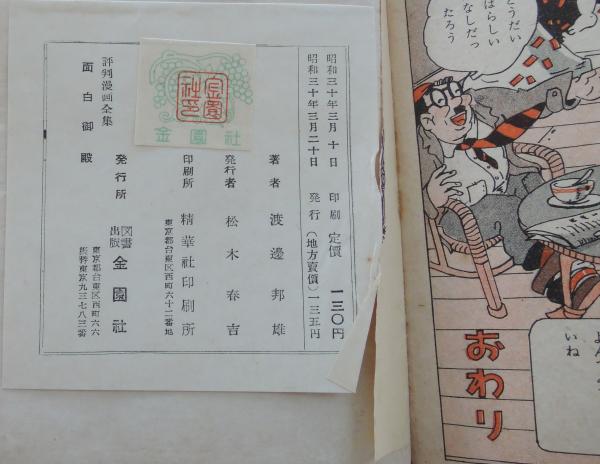 昭和三十年三月 十日 印刷 定價 一三〇円
昭和三十年三月二十日 発行 （地方賣價）一三五円
著者 渡邊邦雄
発行者 松木春吉
印刷所 精華社印刷所
東京都台東区西町六十二番地
発行所 図書出版 金園社
東京都台東区西町六六
振替東京九三七八三番
評判漫画全集
面白御殿
金園社印
金園社
どうだい
すばらしい
なしだっ
たろう
いね
おわり